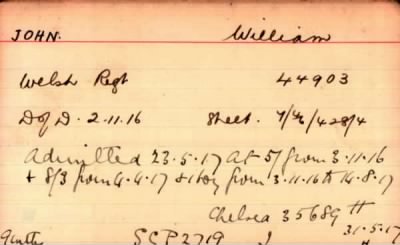 JOHN. William
Welsh Regt 44903
D of D. 2.11.16 Sheet. 4284
Admitted 23.5.17 at 5/ from 3.11.16
+ 8/3 from 4.4.17 from 3.11.16 to 14.8.17
Chelsea 35689
31.5.17
SCP2719